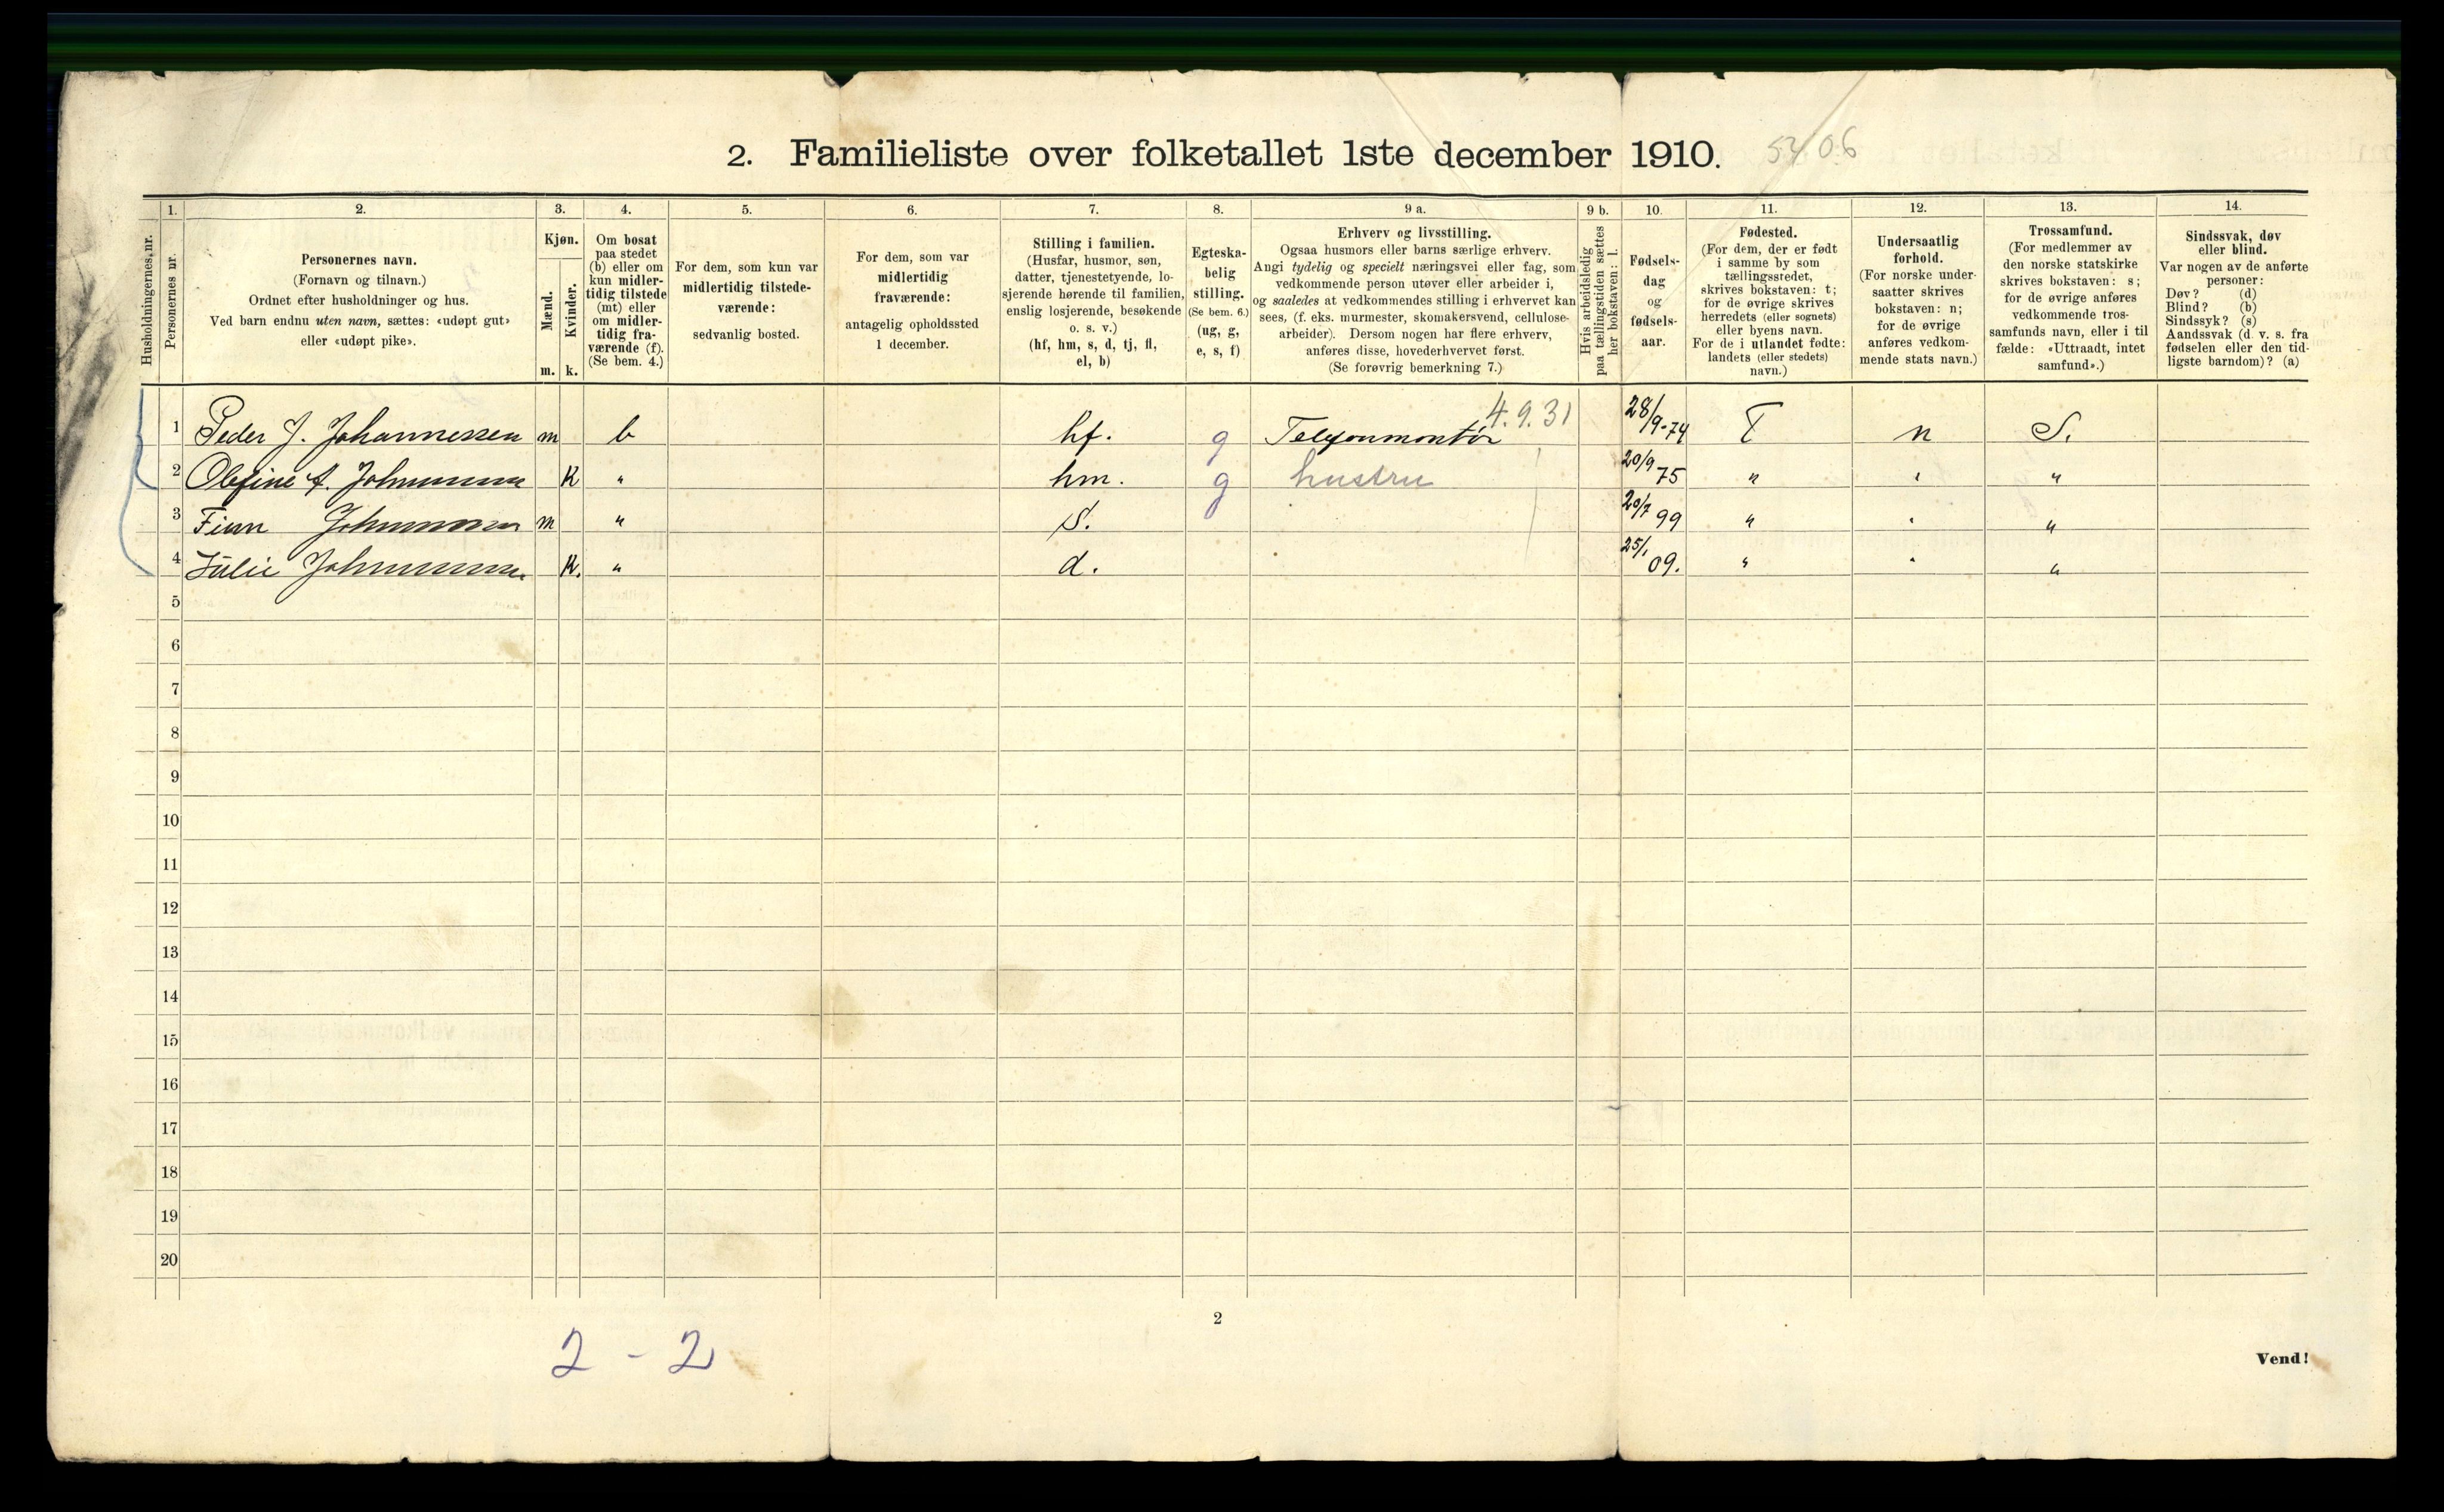 2. Familieliste over folketallet 1ste december 1910. 5406
1. 2. 3. 4. 5. 6. 7. 8. 9 a. 9 b. 10. 11. 12. 13. 14.
Husholdningernes nr.
Personernes nr.
Personernes navn.
(Fornavn og tilnavn.)
Ordnet efter husholdninger og hus.
Ved barn endnu uten navn, sættes: «udøpt gut»
eller «udøpt pike».
Kjøn.
Mænd.
Kvinder.
m. k.
Om bosat
paa stedet
(b) eller om
kun midler-
tidig tilstede
(mt) eller
om midler-
tidig fra-
værende (f).
(Se bem. 4.)
For dem, som kun var
midlertidig tilstede-
værende:
sedvanlig bosted.
For dem, som var
midlertidig
fraværende:
antagelig opholdssted
1 december.
Stilling i familien.
(Husfar, husmor, søn,
datter, tjenestetyende, lo-
sjerende hørende til familien,
enslig losjerende, besøkende
o. s. v.)
(hf, hm, s, d, tj, fl,
el, b)
Egteska-
belig
stilling.
(Se bem. 6.)
(ug, g,
e, s, f)
Erhverv og livsstilling.
Ogsaa husmors eller barns særlige erhverv.
Angi tydelig og specielt næringsvei eller fag, som
vedkommende person utøver eller arbeider i,
og saaledes at vedkommendes stilling i erhvervet kan
sees, (f. eks. murmester, skomakersvend, cellulose-
arbeider). Dersom nogen har flere erhverv,
anføres disse, hovederhvervet først.
(Se forøvrig bemerkning 7.)
Hvis arbeidsledig
paa tællingstiden sættes
her bokstaven: l.
Fødsels-
dag
og
fødsels-
aar.
Fødested.
(For dem, der er født
i samme by som
tællingsstedet,
skrives bokstaven: t;
for de øvrige skrives
herredets (eller sognets)
eller byens navn.
For de i utlandet fødte:
landets (eller stedets)
navn.)
Undersaatlig
forhold.
(For norske under-
saatter skrives
bokstaven: n;
for de øvrige
anføres vedkom-
mende stats navn.)
Trossamfund.
(For medlemmer av
den norske statskirke
skrives bokstaven: s;
for de øvrige anføres
vedkommende tros-
samfunds navn, eller i til-
fælde: «Uttraadt, intet
samfund».)
Sindssvak, døv
eller blind.
Var nogen av de anførte
personer:
Døv? (d)
Blind? (b)
Sindssyk? (s)
Aandssvak (d. v. s. fra
fødselen eller den tid-
ligste barndom)? (a)
4.9.31
1 Peder J. Johannessen m b hf. g Telefonmontør 28/9-74 T n S.
2 Olefine A. Johannessen K " hm. g hustru 20/9 75 " " "
3 Finn Johannessen m " S. 20/7 99 " " "
4 Julie Johannessen K. " d. 25/1 09. " " "
5
6
7
8
9
10
11
12
13
14
15
16
17
18
19
20
2
2 - 2
Vend!